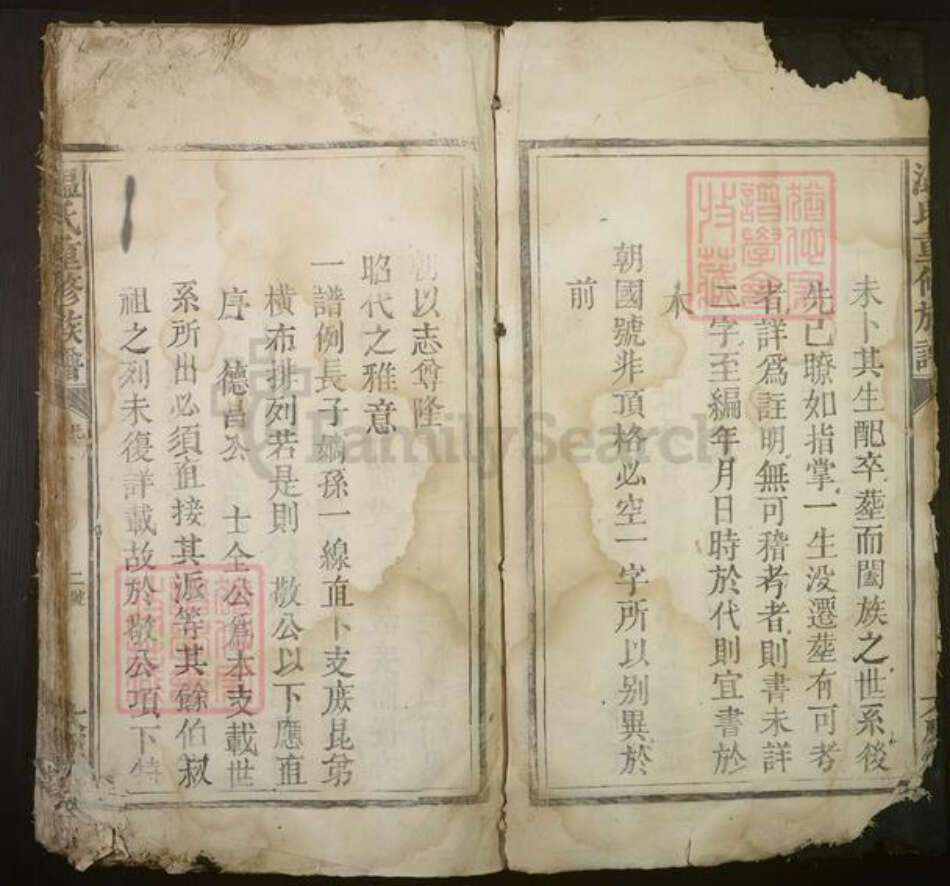 未卜其生配卒塟而闔族之世系後
先已瞭如指掌一生没遷塟有可考
者詳爲註明無可稽考者則書未詳
二字至編年月日時於代則宜書於
朝國號非頂格必空一字所以别異於
前
朝以志尊隆
昭代之雅意
一譜例長子嫡孫一線直下支庶昆弟
横布排列若是則 敬公以下應直
序 德昌公 士全公爲本支載世
系所出必須直接其派等其餘伯叔
祖之列未復詳載故於敬公項下特
温氏重修族譜
二號
FamilySearch